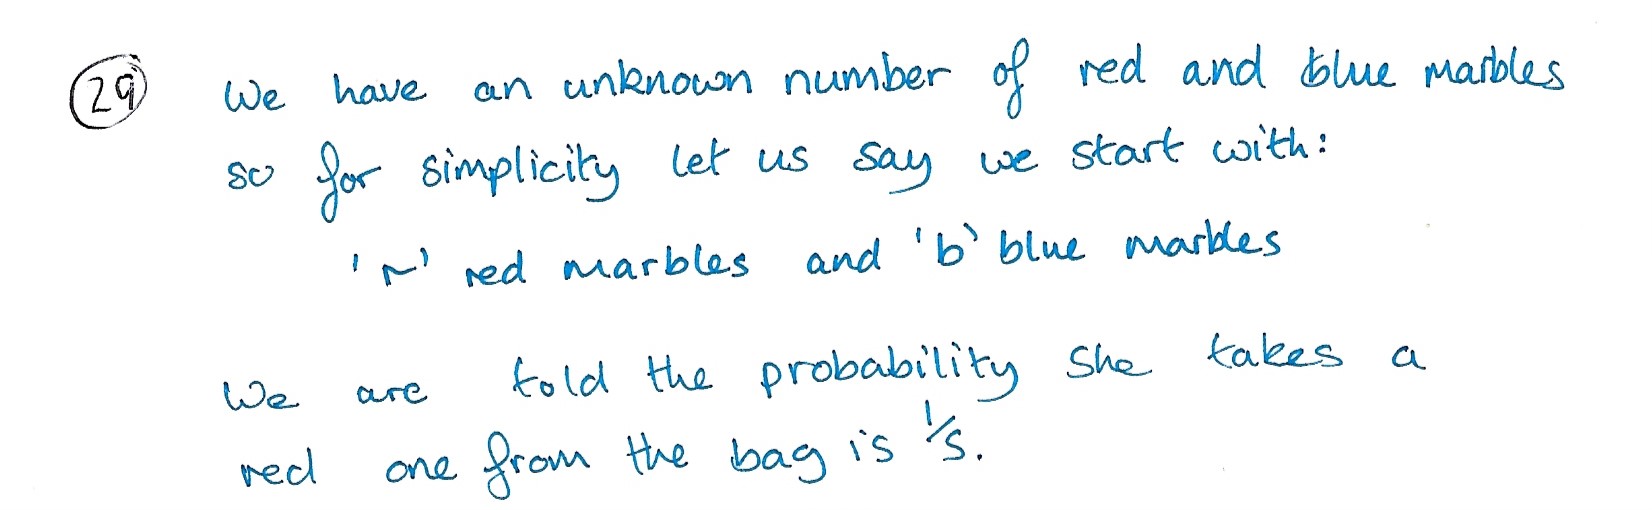 29 We have an unknown number of red and blue marbles
so for simplicity let us say we start with:
'r' red marbles and 'b' blue marbles
We are told the probability she takes a
red one from the bag is 1/5.